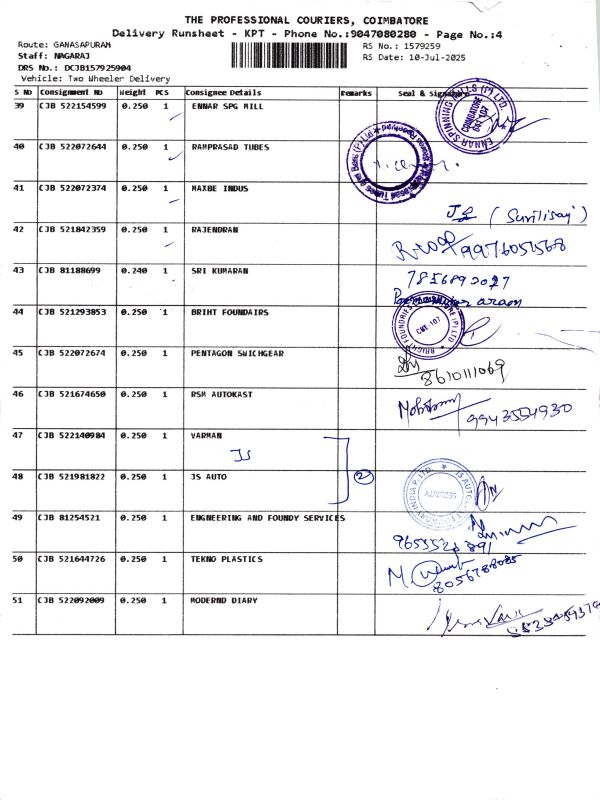 THE PROFESSIONAL COURIERS, COIMBATORE
Delivery Runsheet - KPT - Phone No.:9047080280 - Page No.:4
Route: GANASAPURAM RS No.: 1579259
Staff: NAGARAJ RS Date: 10-Jul-2025
DRS No.: DCJB157925904
Vehicle: Two Wheeler Delivery
S NO Consignment NO Weight PCS Consignee Details Remarks Seal & Signature
39 CJB 522154599 0.250 1 ENNAR SPG MILL
ENNAR SPINNING MILLS (P) LTD. COIMBATORE 641 107
40 CJB 522072644 0.250 1 RAMPRASAD TUBES
41 CJB 522072374 0.250 1 MAXBE INDUS
42 CJB 521842359 0.250 1 RAJENDRAN
9976051568
43 CJB 81188699 0.240 1 SRI KUMARAN
44 CJB 521293853 0.250 1 BRIHT FOUNDAIRS
CBE-107
45 CJB 522072674 0.250 1 PENTAGON SWICHGEAR
8610111069
46 CJB 521674650 0.250 1 RSM AUTOKAST
9943554930
47 CJB 522140984 0.250 1 VARMAN
JS
48 CJB 521981822 0.250 1 JS AUTO 2
49 CJB 81254521 0.250 1 ENGNEERING AND FOUNDY SERVICES
50 CJB 521644726 0.250 1 TEKNO PLASTICS
8056788085
51 CJB 522092009 0.250 1 MODERND DIARY